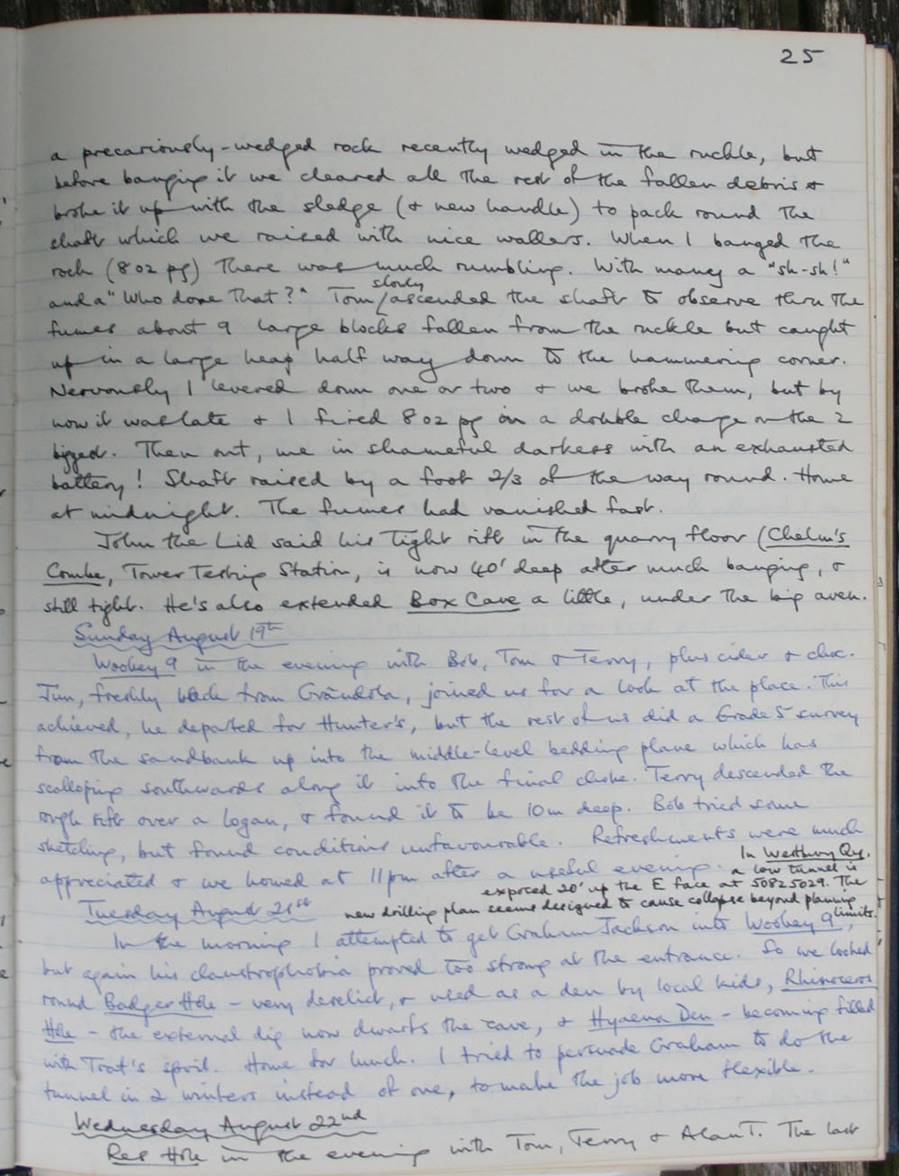 25
a precariously-wedged rock recently wedged in the ruckle, but
before banging it we cleared all the rest of the fallen debris &
broke it up with the sledge (& new handle) to pack round the
shaft which we raised with nice wallers. When I banged the
rock (8 oz pg) there was much rumbling. With many a "sh-sh!"
and a "Who done that?" Tom slowly ascended the shaft to observe thru the
fumes about 9 large blocks fallen from the ruckle but caught
up in a large heap half way down to the hammering corner.
Nervously I levered down one or two & we broke them, but by
now it was late & I fired 8 oz pg in a double charge on the 2
biggest. Then out, me in shameful darkness with an exhausted
battery! Shaft raised by a foot 2/3 of the way round. Home
at midnight. The fumes had vanished fast.
John the Lid said his tight rift in the quarry floor (Chelm's
Combe, Tower Testing Station, is now 40' deep after much banging, &
still tight. He's also extended Box Cave a little, under the big aven.
Sunday August 19th
Wookey 9 in the evening with Bob, Tom & Terry, plus cider & choc.
Jim, freshly back from Grandola, joined us for a look at the place. This
achieved, he departed for Hunter's, but the rest of us did a Grade 5 survey
from the sandbank up into the middle-level bedding plane which has
scalloping southwards along it into the final choke. Terry descended the
rough rift over a logan, & found it to be 10m deep. Bob tried some
sketching, but found conditions unfavourable. Refreshments were much
appreciated & we homed at 11pm after a useful evening. In Westbury Qy.
a low tunnel is
exposed 20' up the E face at 50825029. The
Tuesday August 21st new drilling plan seems designed to cause collapse beyond planning
limits.
In the morning I attempted to get Graham Jackson into Wookey 9,
but again his claustrophobia proved too strong at the entrance. So we looked
round Badger Hole - very derelict, & used as a den by local kids, Rhinoceros
Hole - the external dig now dwarfs the cave, & Hyaena Den - becoming filled
with Trat's spoil. Home for lunch. I tried to persuade Graham to do the
tunnel in 2 winters instead of one, to make the job more flexible.
Wednesday August 22nd
Hole in the evening with Tom, Terry & Alan T. The last